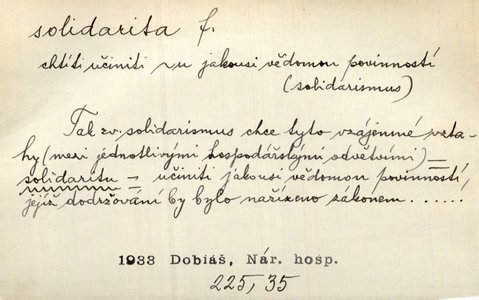 solidarita f.
chtíti učiniti su jakousi vědomou povinností
(solidarismus)
Tak zv. solidarismus chce tyto vzájemné vzta-
hy (mezi jednotlivými hospodářskými odvětvími) —
solidaritu — učiniti jakousi vědomou povinností,
jejíž dodržování by bylo nařízeno zákonem . . . . . .
1933 Dobiáš, Nár. hosp.
225, 35